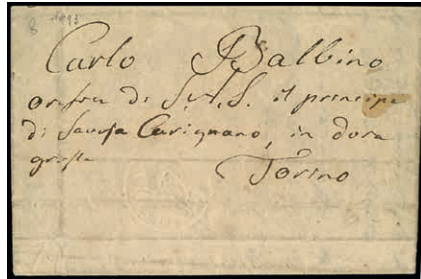 8 1993
Carlo Balbino
orefice di S. A. S. il principe
di Savoja Carignano, in dora
grossa
Torino